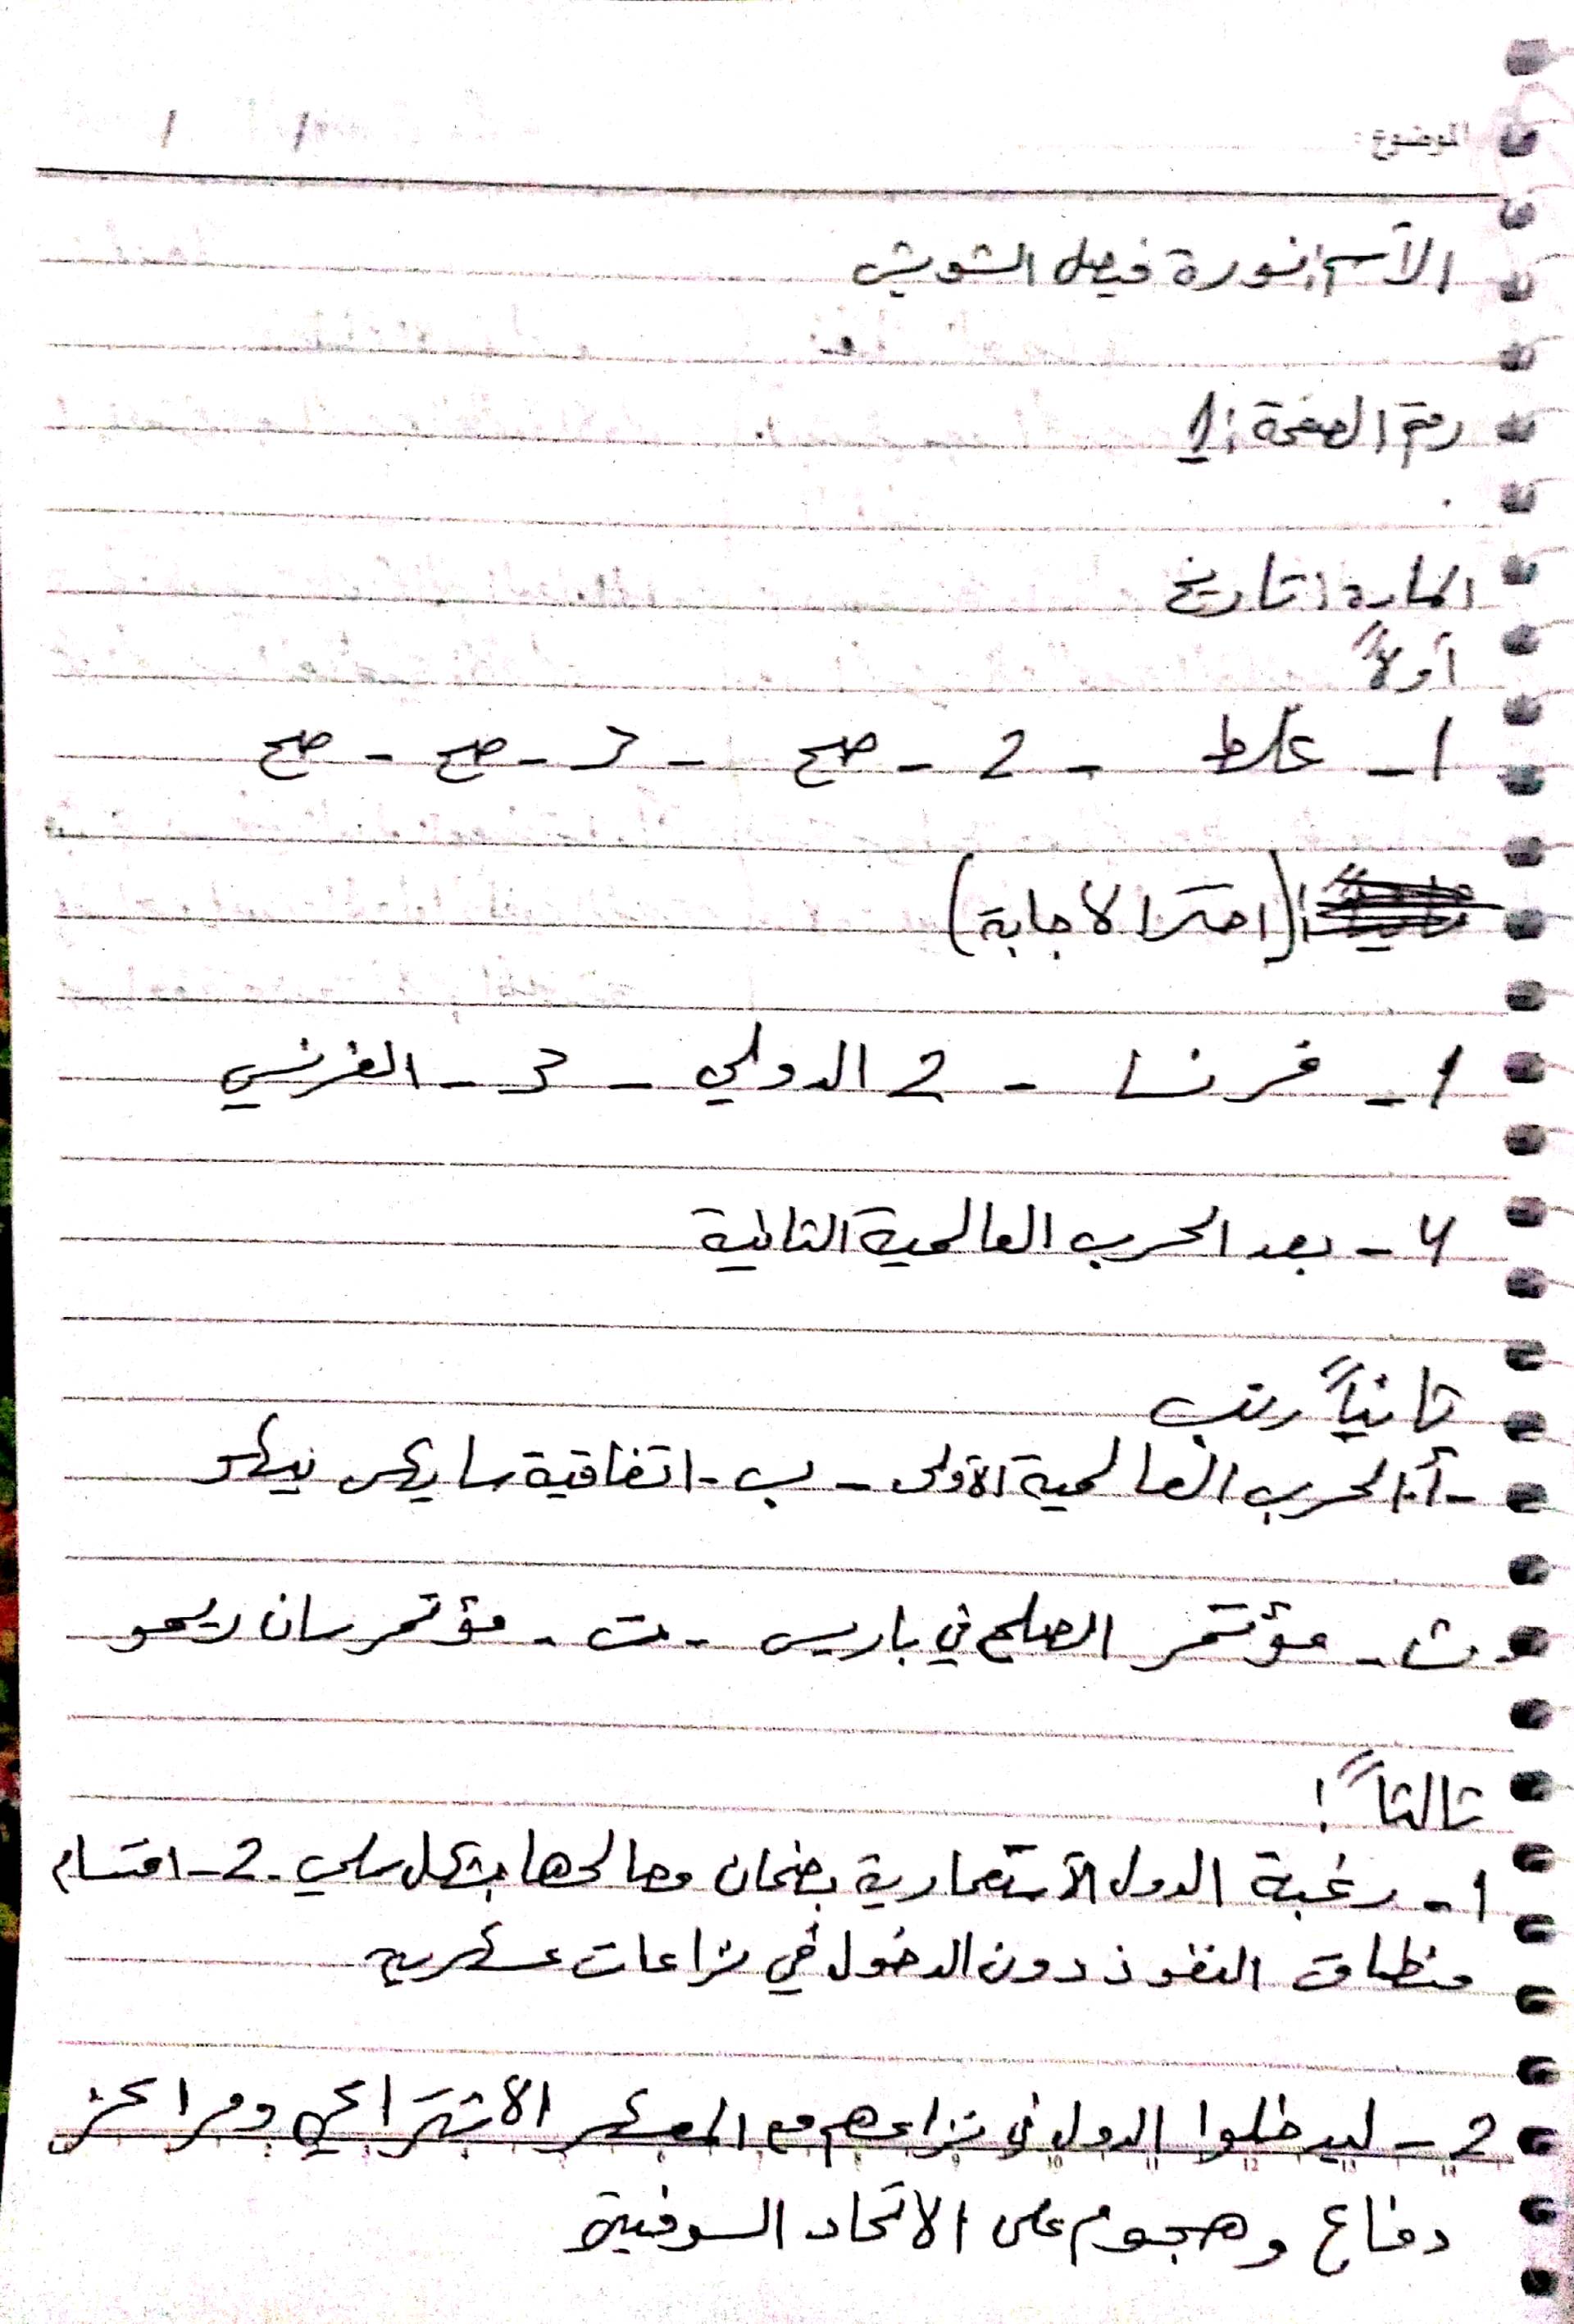 الموضوع: / /
الأسم: نورة فيصل الشويش
رقم الصفحة: 1
المادة: تاريخ
أولاً
1- غلط - 2- صح - 3- صح - صح
(اختر الاجابة)
1- فرنسا - 2 الدولي - 3- الفرنسي
4- بعد الحرب العالمية الثانية
ثانياً رتب
-أ: الحرب العالمية الأولى - ب- اتفاقية سايكس بيكو
ث- مؤتمر الصلح في باريس - ت- مؤتمر سان ريمو
ثالثاً:
1- رغبة الدول الأستعمارية بضمان مصالحها بشكل سلمي. 2- اقتسام
منطاق النفوذ دون الدخول في نزاعات عسكرية
2- ليدخلوا الدول في نزاعهم مع المعسكر الاشتراكي ومراكز
دفاع وهجوم على الاتحاد السوفية